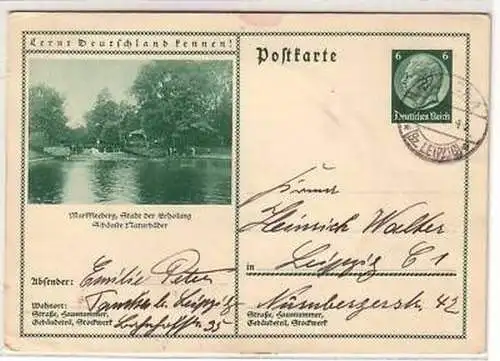 Lernt Deutschland kennen!
Postkarte
6 6
Deutsches Reich
(BZ. LEIPZIG)
Markkleeberg, Stadt der Erholung
Schönste Naturbäder
Firma
Heinrich Walter
in Leipzig C 1
Nürnbergerstr. 42
Straße, Hausnummer,
Gebäudeteil, Stockwerk
Absender: Emilie Peter
Wohnort: b. Leipzig
Straße, Hausnummer,
Gebäudeteil, Stockwerk
Bahnhofstr. 35